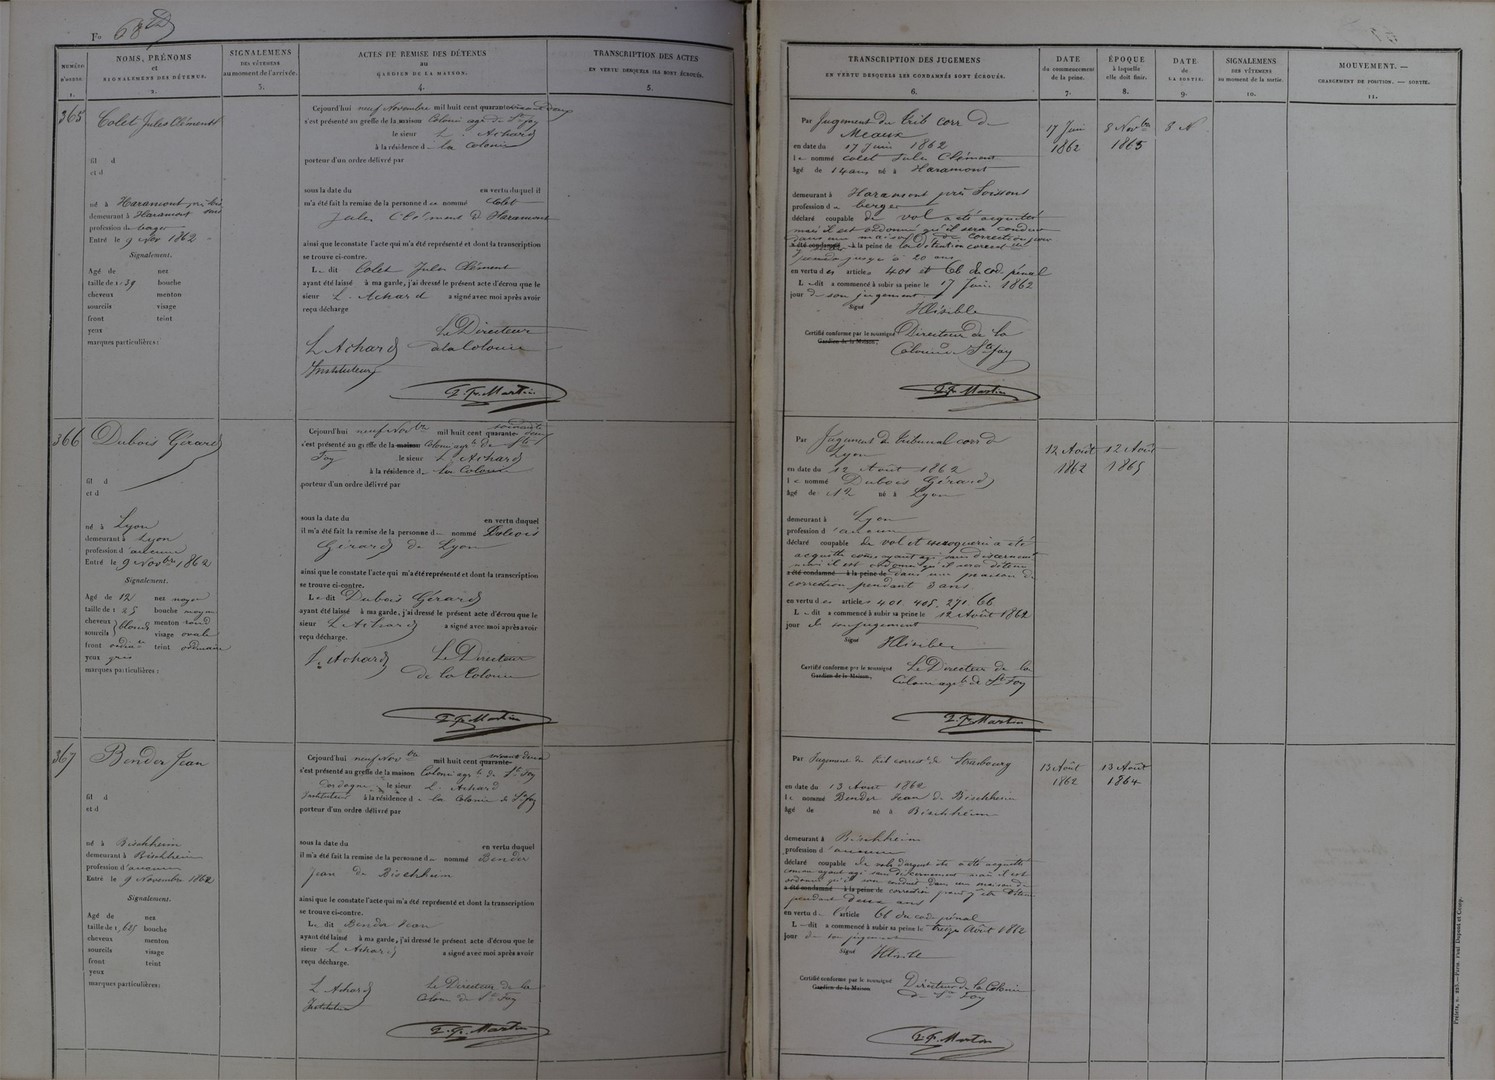 F°
NUMÉRO D'ORDRE. 1.
NOMS, PRÉNOMS
et
SIGNALEMENS DES DÉTENUS.
2.
SIGNALEMENS
DES VÊTEMENS
au moment de l'arrivée.
3.
ACTES DE REMISE DES DÉTENUS
AU
GARDIEN DE LA MAISON.
4.
TRANSCRIPTION DES ACTES
EN VERTU DESQUELS ILS SONT ÉCROUÉS.
5.
365
Colet Jules Clément
fil d
et d
né à Haramont
demeurant à Haramont
profession de berger
Entré le 9 Nov 1862
Signalement.
Agé de nez
taille de 1 39 bouche
cheveux menton
sourcils visage
front teint
yeux
marques particulières :
Cejourd'hui neuf Novembre mil huit cent quarante soixante deux
s'est présenté au greffe de la maison Colonie agr de Ste foy
le sieur L. Achard
à la résidence de la Colonie
porteur d'un ordre délivré par
sous la date du en vertu duquel il
m'a été fait la remise de la personne d nommé Colet
Jules Clément de Haramont
ainsi que le constate l'acte qui m'a été représenté et dont la transcription
se trouve ci-contre.
Le dit Colet Jules Clément
ayant été laissé à ma garde, j'ai dressé le présent acte d'écrou que le
sieur L. Achard a signé avec moi après avoir
reçu décharge
L. Achard Le Directeur
Instituteur de la Colonie
Martin
366
Dubois Gérard
fil d
et d
né à Lyon
demeurant à Lyon
profession d'aucune
Entré le 9 Novbre 1862
Signalement.
Agé de 12 nez moyen
taille de 1 25 bouche moyen
cheveux blond menton rond
sourcils visage ovale
front ordinre teint ordinaire
yeux gris
marques particulières :
Cejourd'hui neuf Novbre mil huit cent quarante soixante deux
s'est présenté au greffe de la maison Colonie agrle de Ste
Foy le sieur L. Achard
à la résidence de la Colonie
porteur d'un ordre délivré par
sous la date du en vertu duquel
il m'a été fait la remise de la personne d nommé Dubois
Gérard de Lyon
ainsi que le constate l'acte qui m'a été représenté et dont la transcription
se trouve ci-contre.
Le dit Dubois Gérard
ayant été laissé à ma garde, j'ai dressé le présent acte d'écrou que le
sieur L. Achard a signé avec moi après avoir
reçu décharge.
L. Achard Le Directeur
de la Colonie
Martin
367
Bender Jean
fil d
et d
né à Bischheim
demeurant à Bischheim
profession d'aucune
Entré le 9 Novembre 1862
Signalement.
Agé de nez
taille de 1, 615 bouche
cheveux menton
sourcils visage
front teint
yeux
marques particulières :
Cejourd'hui neuf Novbre mil huit cent quarante soixante deux
s'est présenté au greffe de la maison Colonie agrle de Ste Foy
Dordogne le sieur L. Achard
Instituteur à la résidence de la Colonie de Ste Foy
porteur d'un ordre délivré par
sous la date du en vertu duquel
il m'a été fait la remise de la personne d nommé Bender
Jean de Bischheim
ainsi que le constate l'acte qui m'a été représenté et dont la transcription
se trouve ci-contre.
Le dit Bender Jean
ayant été laissé à ma garde, j'ai dressé le présent acte d'écrou que le
sieur L. Achard a signé avec moi après avoir
reçu décharge.
L. Achard Le Directeur de la
Instituteur Colonie de Ste Foy
Martin
TRANSCRIPTION DES JUGEMENS
EN VERTU DESQUELS LES CONDAMNÉS SONT ÉCROUÉS.
6.
DATE
du commencement
de la peine.
7.
ÉPOQUE
à laquelle
elle doit finir.
8.
DATE
de
LA SORTIE.
9.
SIGNALEMENS
DES VÊTEMENS
au moment de la sortie.
10.
MOUVEMENT. —
CHANGEMENT DE POSITION. — SORTIE.
11.
Par Jugement du trib corr de
Meaux
en date du 17 Juin 1862
le nommé Colet Jules Clément
âgé de 14 ans né à Haramont
demeurant à Haramont près Soissons
profession de berger
déclaré coupable de vol a été acquitté
mais il est ordonné qu'il sera conduit
dans une maison de correction pour
a été condamné à la peine de
jusqu'à 20 ans
en vertu des articles 401 et 66 du cod. pénal
Le dit a commencé à subir sa peine le 17 Juin 1862
jour de son jugement
Signé Illisible
Certifié conforme par le soussigné Directeur de la
Gardien de la Maison, Colonie de Ste foy
Martin
17 Juin 1862
8 Novbre 1865
8 N
Par Jugement du tribunal corr de
Lyon
en date du 12 Août 1862
le nommé Dubois Gérard
âgé de 12 né à Lyon
demeurant à Lyon
profession d'aucune
déclaré coupable de vol et escroquerie a été
acquitté comme ayant agi sans discernement
mais il est ordonné qu'il sera détenu
a été condamné à la peine de dans une maison de
correction pendant 3 ans
en vertu des articles 401. 405. 271. 66
Le dit a commencé à subir sa peine le 12 Août 1862
jour de son jugement
Signé Illisible
Certifié conforme par le soussigné Le Directeur de la
Gardien de la Maison, Colonie agle de Ste Foy
Martin
12 Août 1862
12 Août 1865
Par Jugement du trib correctl de Strasbourg
en date du 13 Août 1862
le nommé Bender Jean de Bischheim
âgé de né à Bischheim
demeurant à Bischheim
profession d'aucune
déclaré coupable de vols d'argent etc a été acquitté
comme ayant agi sans discernement mais il est
ordonné qu'il sera conduit dans une maison de
a été condamné à la peine de correction pour y être détenu
pendant deux ans
en vertu de l'article 66 du code pénal
Le dit a commencé à subir sa peine le treize Août 1862
jour de son jugement
Signé Illisible
Certifié conforme par le soussigné Directeur de la Colonie
Gardien de la Maison de Ste Foy
Martin
13 Août 1862
13 Août 1864